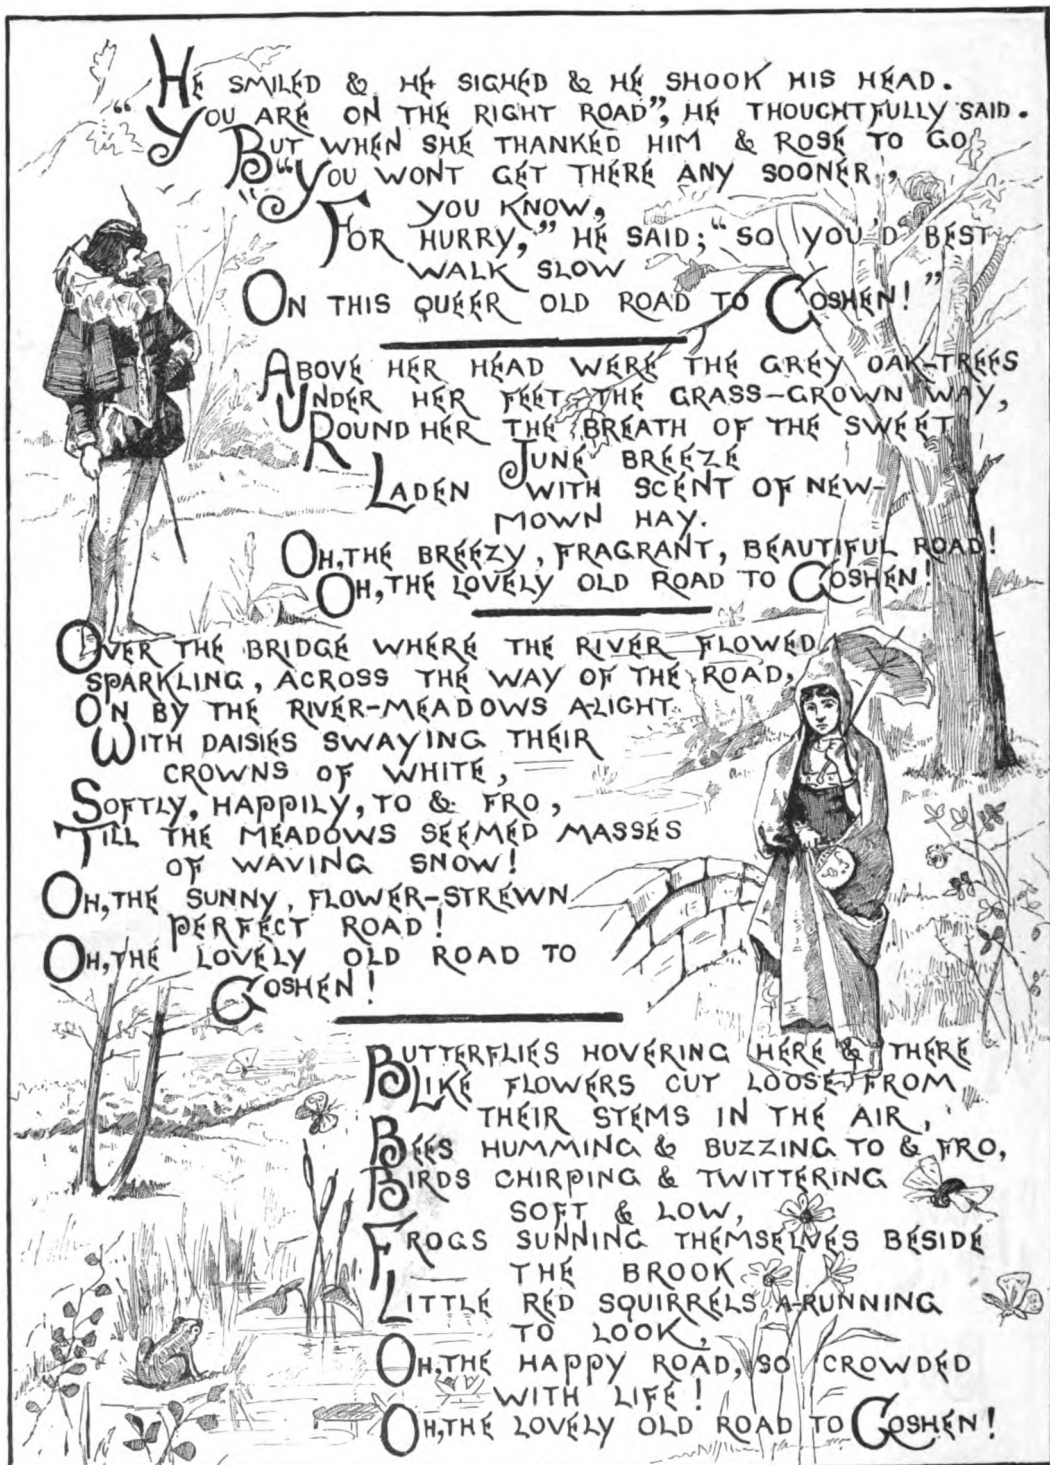 HE SMILED & HE SIGHED & HE SHOOK HIS HEAD.
"YOU ARE ON THE RIGHT ROAD", HE THOUGHTFULLY SAID.
BUT WHEN SHE THANKED HIM & ROSE TO GO
"YOU WONT GET THERE ANY SOONER,
YOU KNOW,
FOR HURRY," HE SAID; "SO YOU'D BEST
WALK SLOW
ON THIS QUEER OLD ROAD TO GOSHEN!"
ABOVE HER HEAD WERE THE GREY OAK-TREES
UNDER HER FEET THE GRASS-GROWN WAY,
ROUND HER THE BREATH OF THE SWEET
JUNE BREEZE
LADEN WITH SCENT OF NEW-
MOWN HAY.
OH, THE BREEZY, FRAGRANT, BEAUTIFUL ROAD!
OH, THE LOVELY OLD ROAD TO GOSHEN!
OVER THE BRIDGE WHERE THE RIVER FLOWED
SPARKLING, ACROSS THE WAY OF THE ROAD,
ON BY THE RIVER-MEADOWS A-LIGHT
WITH DAISIES SWAYING THEIR
CROWNS OF WHITE,
SOFTLY, HAPPILY, TO & FRO,
TILL THE MEADOWS SEEMED MASSES
OF WAVING SNOW!
OH, THE SUNNY, FLOWER-STREWN
PERFECT ROAD!
OH, THE LOVELY OLD ROAD TO
GOSHEN!
BUTTERFLIES HOVERING HERE & THERE
LIKE FLOWERS CUT LOOSE FROM
THEIR STEMS IN THE AIR,
BEES HUMMING & BUZZING TO & FRO,
BIRDS CHIRPING & TWITTERING
SOFT & LOW,
FROGS SUNNING THEMSELVES BESIDE
THE BROOK
LITTLE RED SQUIRRELS A-RUNNING
TO LOOK,
OH, THE HAPPY ROAD, SO CROWDED
WITH LIFE!
OH, THE LOVELY OLD ROAD TO GOSHEN!